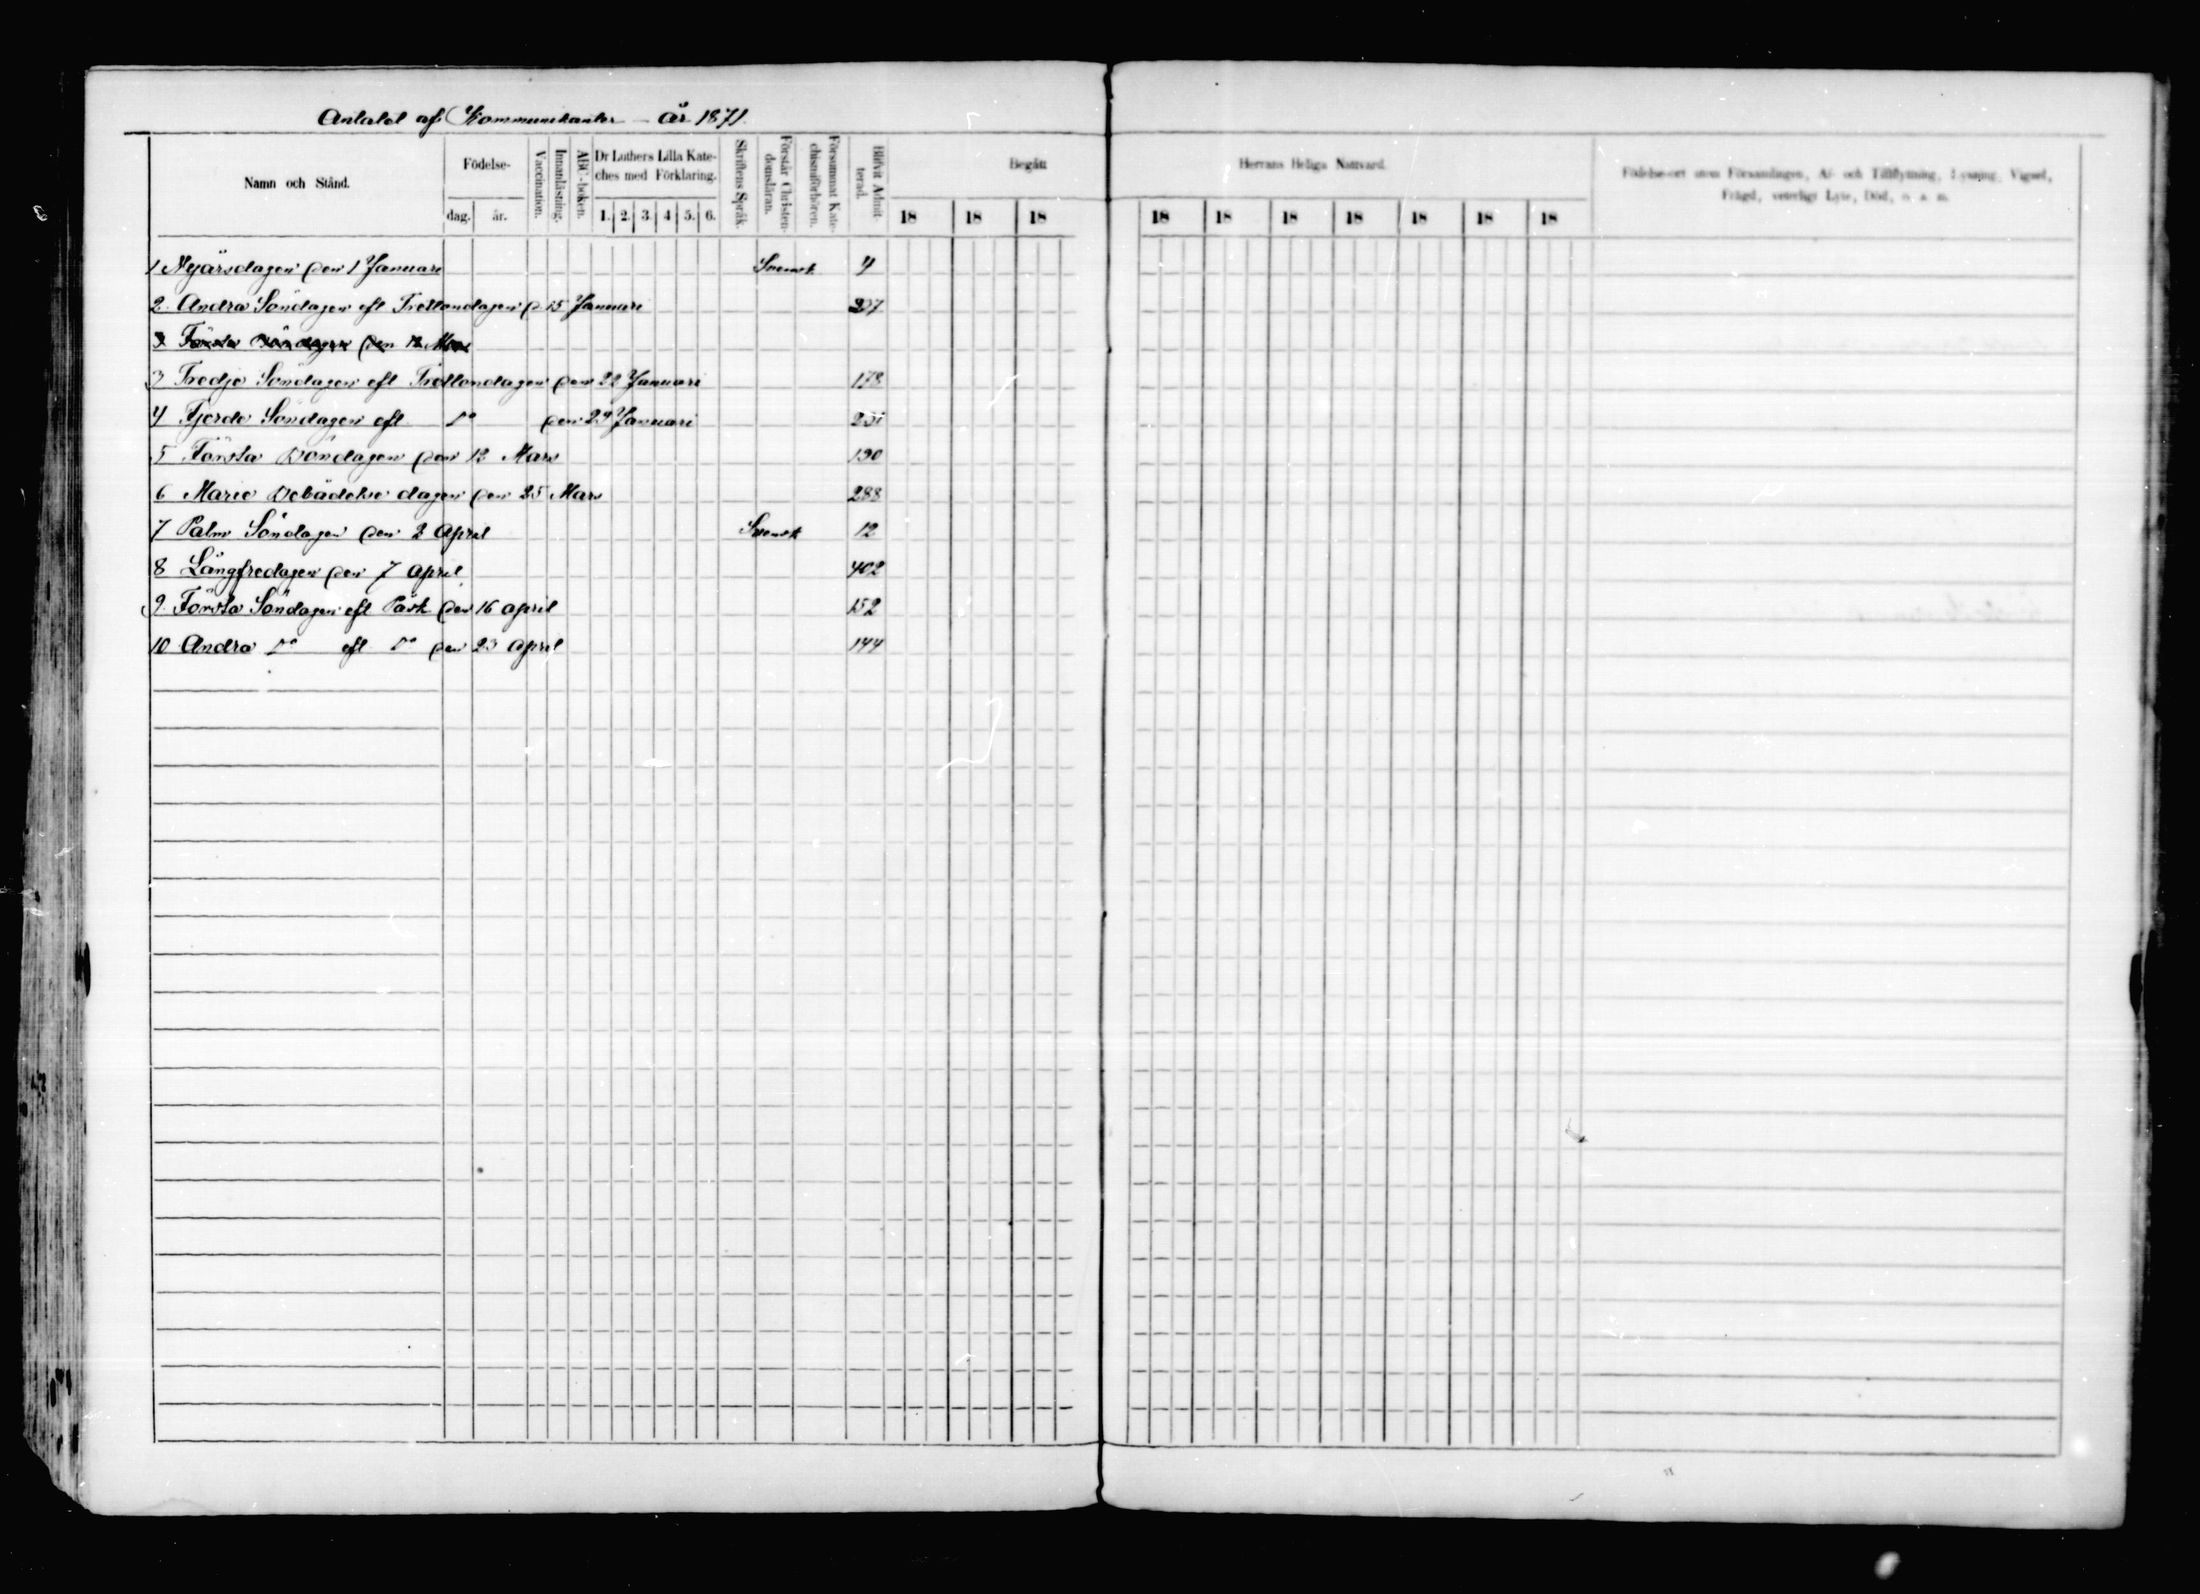 Antalet af Kommunikanter – år 1871.
Namn och Stånd.
Födelse-
dag. år.
Vaccination.
Innanläsning.
ABC-boken.
Dr Luthers Lilla Kate-
ches med Förklaring.
1. 2. 3. 4 5. 6.
Skriftens Språk.
Förstår Christen-
domsläran.
Försummat Kate-
chismiförhören.
Blifvit Admit-
terad.
Begått
18 18 18
Herrans Heliga Nattvard.
18 18 18 18 18 18 18
Födelse-ort utom Församlingen, Af- och Tillflyttning, Lysning, Vigsel,
Frägd, veterligt Lyte, Död, o. s. m.
1 Nyårsdagen den 1 Januari Svensk 4
2. Andra Söndagen eft Trettondagen d. 15 Januari 237
3 Första Böndagen den 12 Mars
3 Tredje Söndagen eft Trettondagen den 22 Januari 178
4 Fjerde Söndagen eft Do den 29 Januari 231
5 Första Böndagen den 12 Mars 130
6 Marie Bebådelse dagen den 25 Mars 288
7 Palm Söndagen den 2 April Svensk 12
8 Långfredagen den 7 April 402
9. Första Söndagen eft Påsk den 16 april 152
10 Andra Do eft Do den 23 April 144